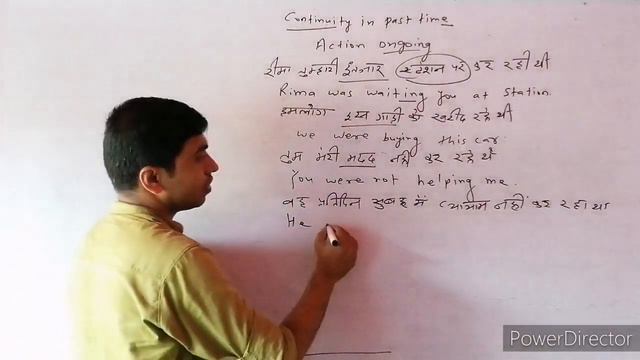 Continuity in past time
Action ongoing
रीमा तुम्हारी इंतजार स्टेशन पर कर रही थी
Rima was waiting you at station
हमलोग इस गाड़ी को खरीद रहे थी
we were buying this car.
तुम मेरी मदद नहीं कर रहे थे
You were not helping me.
वह प्रतिदिन सुबह में व्यायाम नहीं कर रहा था
He
PowerDirector